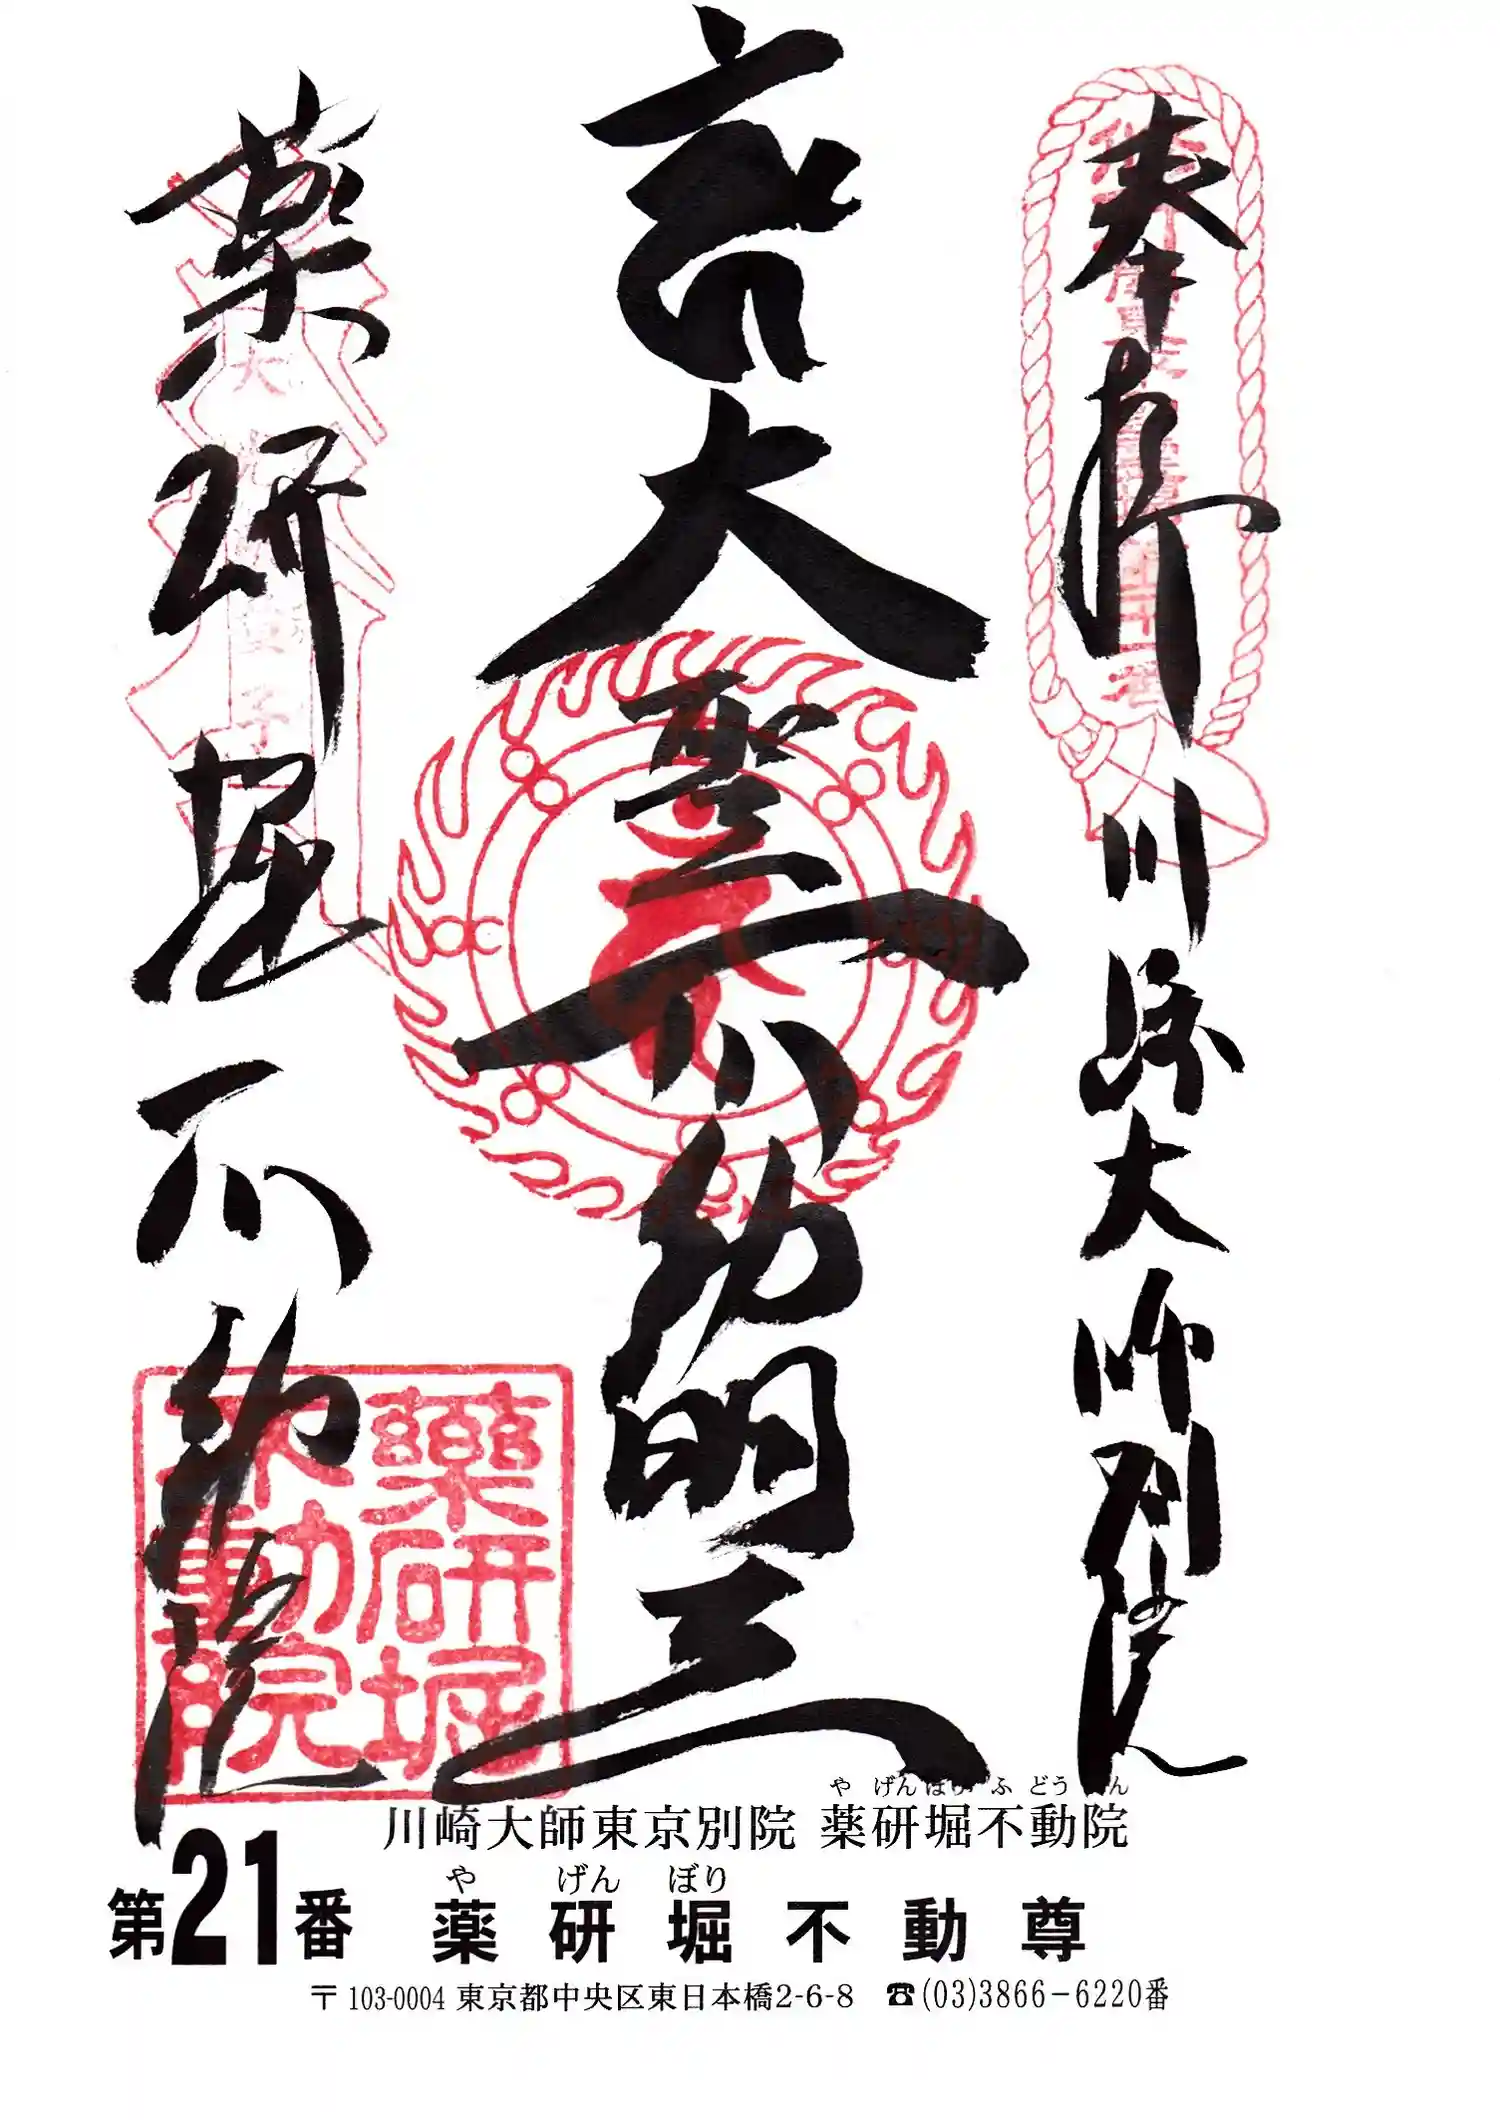 奉拝 川崎大師別院
大聖不動明王
薬研堀不動院
藥研堀
不動院
川崎大師東京別院 薬研堀不動院
や げん ぼり
第21番 薬研堀不動尊
〒103-0004 東京都中央区東日本橋2-6-8 ☎(03)3866-6220番